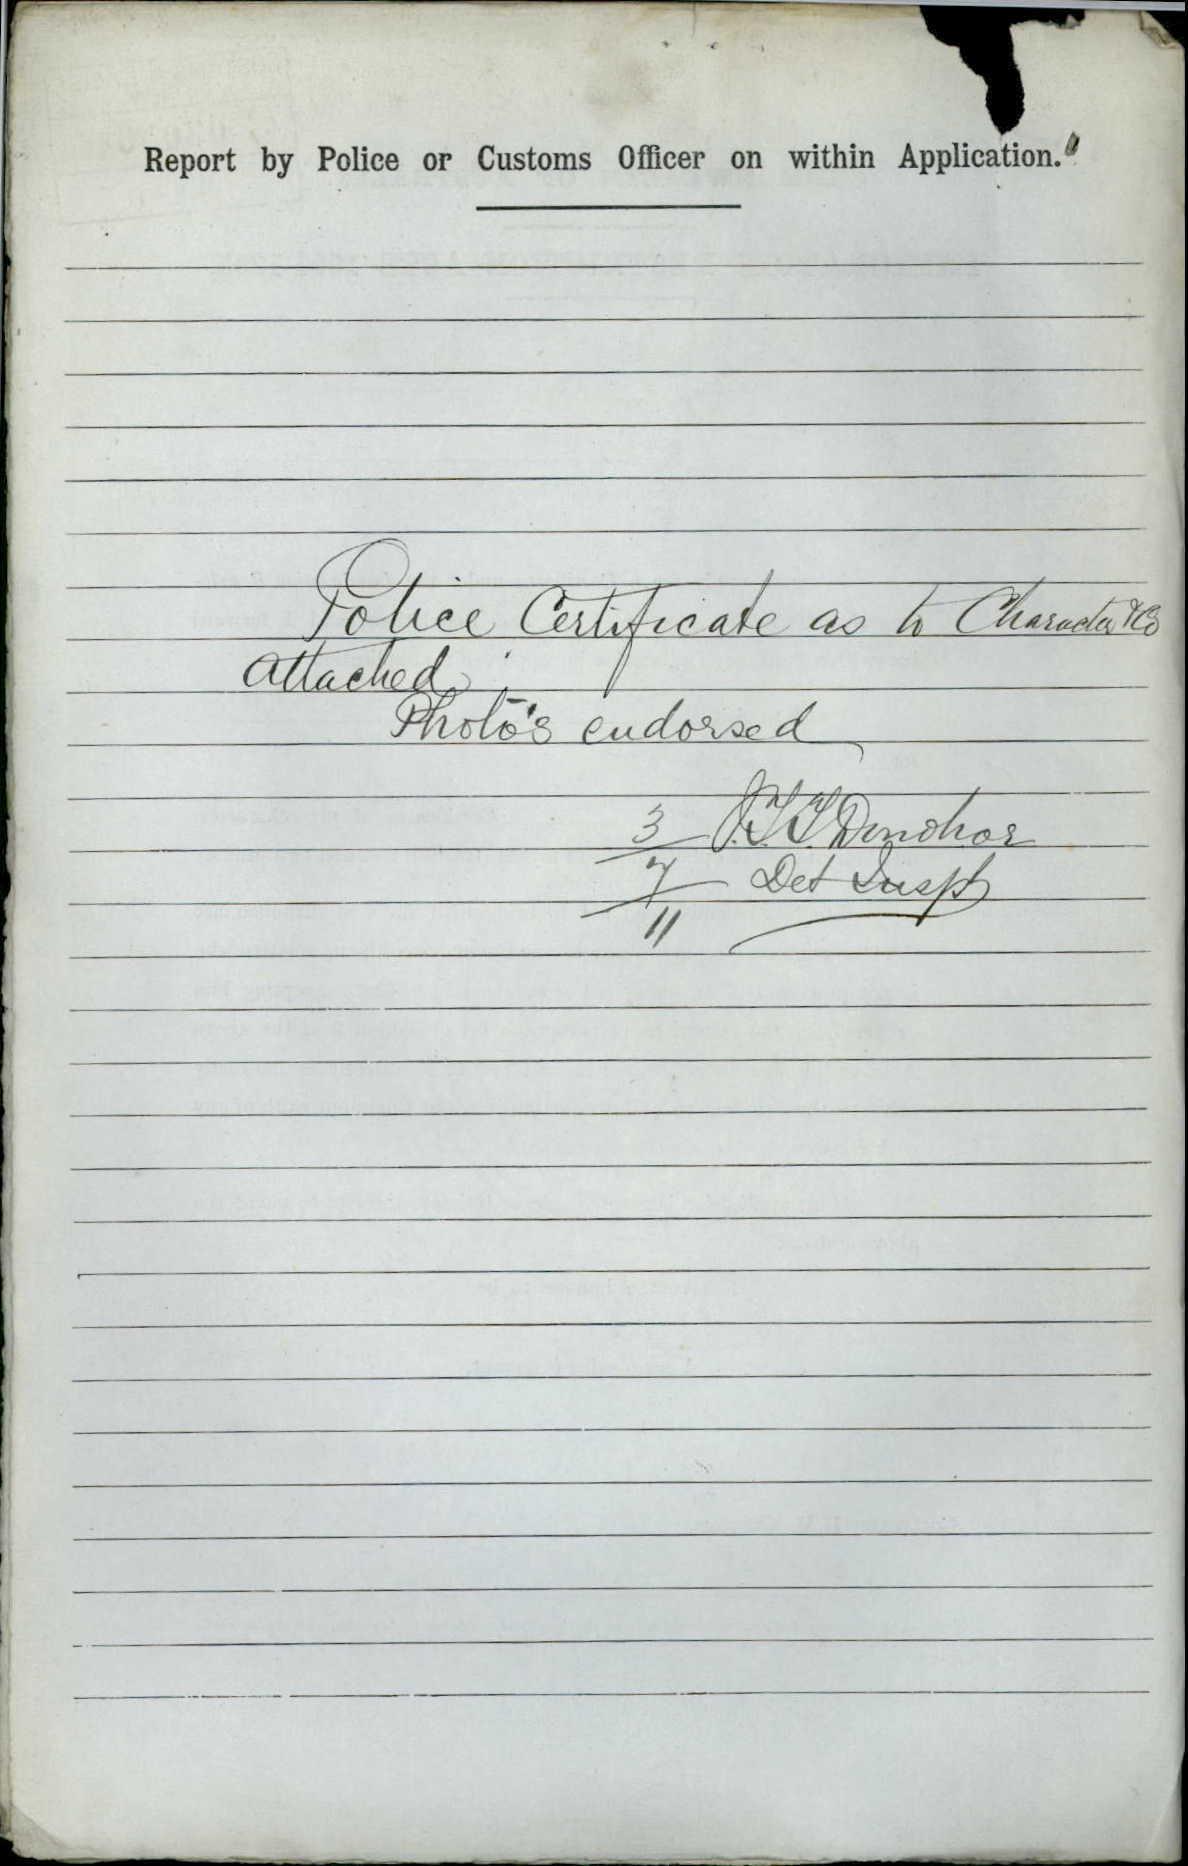 Report by Police or Customs Officer on within Application.
Police Certificate as to Character &c
attached.
Photo's endorsed
3/7/11 Donohoe
Det Insp